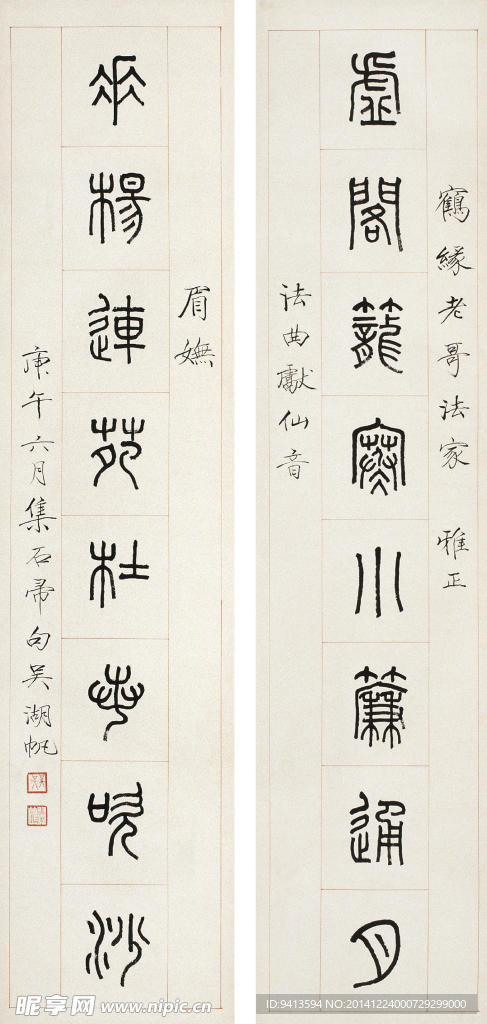 鶴緣老哥法家 雅正
虛閣籠寒小簾通月
法曲獻仙音
眉嫵
垂楊連苑杜若吹沙
庚午六月集石帚句吳湖帆
昵享网 www.nipic.cn
ID:9413594 NO:20141224000729299000